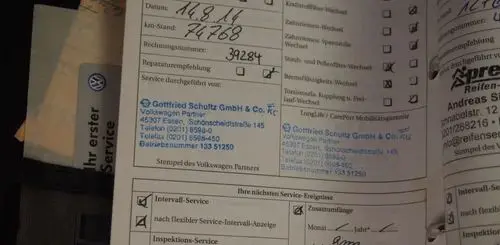 Datum:
14.8.14
km-Stand:
74768
Rechnungsnummer:
39284
Reparaturempfehlung
Service durchgeführt von:
Gottfried Schultz GmbH & Co. KG
Volkswagen Partner
45307 Essen, Schönscheidtstraße 145
Telefon (0201) 8598-0
Telefax (0201) 8598-450
Betriebsnummer 133 51250
Stempel des Volkswagen Partners
Kraftstofffilter-Wechsel
Zahnriemen-Wechsel
Zahnriemen-Spannrolle
Wechsel
Staub- und Pollenfilter-Wechsel
Bremsflüssigkeits-Wechsel
lauf-Wechsel
LongLife / CarePort Mobilitätsgarantie
Gottfried Schultz GmbH & Co.
Volkswagen Partner
Betriebsnummer 133 51250
Stempel des Volkswagen Partners
Ihre nächsten Service-Ereignisse
Intervall-Service
nach flexibler Service-Intervall-Anzeige
Inspektions-Service
Zusatzumfänge
Monat
Jahr
Ihr erster
Service
Reifen-
Andreas
0201/268216
Intervall-Service
nach flexibler
Inspektions-S